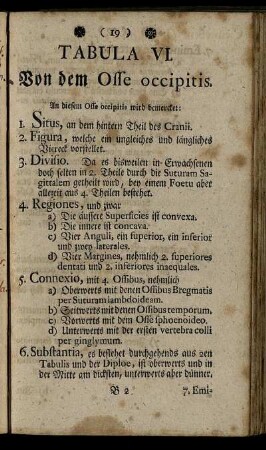 (19)
TABULA VI.
Von dem Osse occipitis.
An diesem Osse occipitis wird bemercket:
1. Situs, an dem hintern Theil des Cranii.
2. Figura, welche ein ungleiches und längliches
Viereck vorstellet.
3. Divisio. Da es bisweilen in Erwachsenen
doch selten in 2. Theile durch die Suturam Sa-
gittalem getheilt wird, bey einem Foetu aber
allezeit aus 4. Theilen bestehet.
4. Regiones, und zwar
a) Die äussere Superficies ist convexa.
b) Die innere ist concava.
c) Vier Anguli, ein superior, ein inferior
und zwey laterales.
d) Vier Margines, nehmlich 2. superiores
dentati und 2. inferiores inaequales.
5. Connexio, mit 4. Ossibus, nehmlich
a) Oberwerts mit denen Ossibus Bregmatis
per Suturam lambdoideam.
b) Seitwerts mit denen Ossibus temporum.
c) Vorwerts mit dem Osse sphoenoideo.
d) Unterwerts mit der ersten vertebra colli
per ginglymum.
6. Substantia, es bestehet durchgehends aus 2en
Tabulis und der Diploe, ist oberwerts und in
der Mitte am dicksten, unterwerts aber dünner.
B 2
7. Emi-